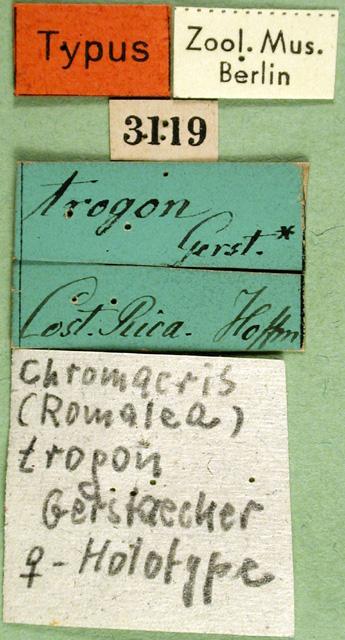 Typus
Zool. Mus.
Berlin
3119
trogon
Gerst.*
Cost. Rica. Hoffm
Chromacris
(Romalea)
trogon
Gerstaecker
♀ - Holotype